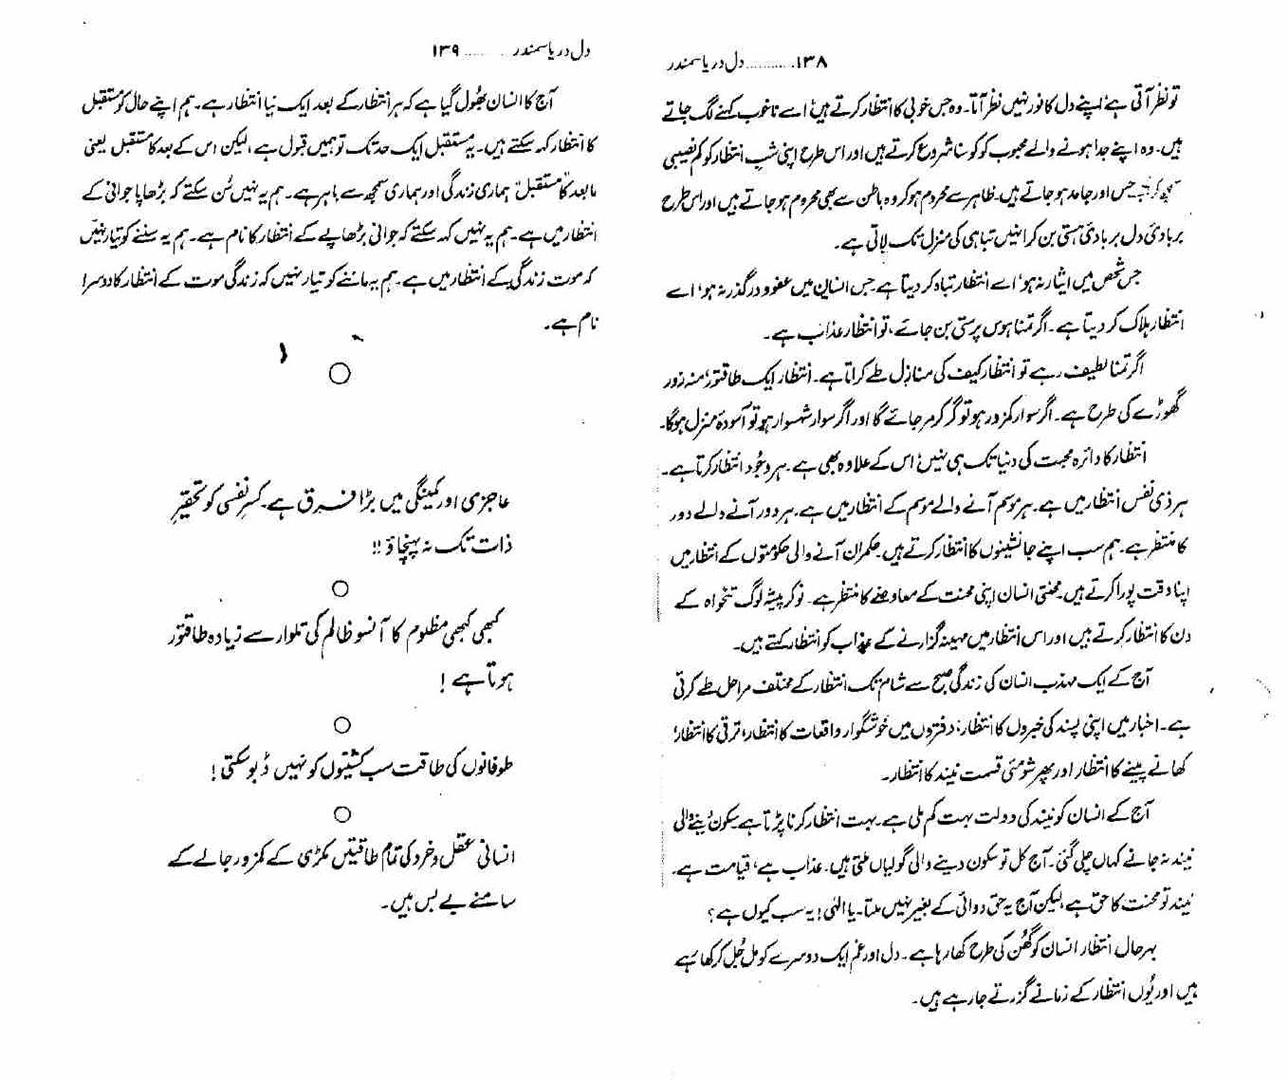 ۱۳۸............دل دریا سمندر
تو نظر آتی ہے‘ اپنے دل کا نور نہیں نظر آتا۔ وہ جس خوبی کا انتظار کرتے ہیں‘ اسے ناخوب کہنے لگ جاتے
ہیں۔ وہ اپنے جدا ہونے والے محبوب کو کوسنا شروع کرتے ہیں اور اس طرح اپنی شبِ انتظار کو کم نصیبی
سمجھ کر بے حس اور جامد ہو جاتے ہیں۔ ظاہر سے محروم ہو کر وہ باطن سے بھی محروم ہو جاتے ہیں اور اس طرح
بربادئ دل بربادئ ہستی بن کر انہیں تباہی کی منزل تک لاتی ہے۔
جس شخص میں ایثار نہ ہو‘ اسے انتظار تباہ کر دیتا ہے۔ جس انسان میں عفو و درگذر نہ ہو‘ اسے
انتظار ہلاک کر دیتا ہے۔ اگر تمنا ہوس پرستی بن جائے، تو انتظار عذاب ہے۔
اگر تمنا لطیف رہے تو انتظار کیف کی منازل طے کراتا ہے۔ انتظار ایک طاقتور‘ منہ زور
گھوڑے کی طرح ہے۔ اگر سوار کمزور ہو تو گر کر مر جائے گا اور اگر سوار شہسوار ہو تو آسودۂ منزل ہوگا۔
انتظار کا دائرہ محبت کی دنیا تک ہی نہیں‘ اس کے علاوہ بھی ہے۔ ہر وجُود انتظار کرتا ہے۔
ہر ذی نفس انتظار میں ہے۔ ہر موسم آنے والے موسم کے انتظار میں ہے۔ ہر دور آنے والے دور
کا منتظر ہے۔ ہم سب اپنے جانشینوں کا انتظار کرتے ہیں۔ حکمران آنے والی حکومتوں کے انتظار میں
اپنا وقت پورا کرتے ہیں۔ محنتی انسان اپنی محنت کے معاوضے کا منتظر ہے۔ نوکر پیشہ لوگ تنخواہ کے
دن کا انتظار کرتے ہیں اور اس انتظار میں مہینہ گزارنے کے عذاب کو انتظار کہتے ہیں۔
آج کے ایک مہذب انسان کی زندگی صبح سے شام تک انتظار کے مختلف مراحل طے کرتی
ہے۔ اخبار میں اپنی پسند کی خبروں کا انتظار، دفتروں میں خوشگوار واقعات کا انتظار‘ ترقی کا انتظار‘
کھانے پینے کا انتظار اور پھر شومئی قسمت نیند کا انتظار۔
آج کے انسان کو نیند کی دولت بہت کم ملی ہے۔ بہت انتظار کرنا پڑتا ہے سکون دینے والی
نیند نہ جانے کہاں چلی گئی۔ آج کل تو سکون دینے والی گولیاں ملتی ہیں۔ عذاب ہے‘ قیامت ہے۔
نیند تو محنت کا حق ہے، لیکن آج یہ حق دوائی کے بغیر نہیں ملتا۔ یا الٰہی! یہ سب کیوں ہے؟
بہرحال انتظار انسان کو گھُن کی طرح کھا رہا ہے۔ دل اور غم ایک دوسرے کو مل جُل کر کھا رہے
ہیں اور یُوں انتظار کے زمانے گزرتے جا رہے ہیں۔
دل دریا سمندر ........ ۱۳۹
آج کا انسان بھُول گیا ہے کہ ہر انتظار کے بعد ایک نیا انتظار ہے۔ ہم اپنے حال کو مستقبل
کا انتظار کہہ سکتے ہیں۔ یہ مستقبل ایک حد تک تو ہمیں قبول ہے، لیکن اس کے بعد کا مستقبل یعنی
مابعد کا ”مستقبل“ ہماری زندگی اور ہماری سمجھ سے باہر ہے۔ ہم یہ نہیں سُن سکتے کہ بڑھاپا جوانی کے
انتظار میں ہے۔ ہم یہ نہیں کہہ سکتے کہ جوانی بڑھاپے کے انتظار کا نام ہے۔ ہم یہ سننے کو تیار نہیں
کہ موت زندگی کے انتظار میں ہے۔ ہم یہ ماننے کو تیار نہیں کہ زندگی موت کے انتظار کا دوسرا
نام ہے۔
عاجزی اور کمینگی میں بڑا فرق ہے۔ کسرِ نفسی کو تحقیرِ
ذات تک نہ پہنچاؤ !!
کبھی کبھی مظلوم کا آنسو ظالم کی تلوار سے زیادہ طاقتور
ہوتا ہے !
طوفانوں کی طاقت سب کشتیوں کو نہیں ڈبو سکتی !
انسانی عقل و خرد کی تمام طاقتیں مکڑی کے کمزور جالے کے
سامنے بے بس ہیں۔